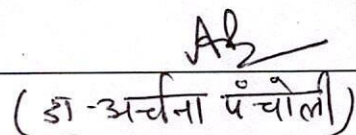 ( डॉ -अर्चना पंचोली )